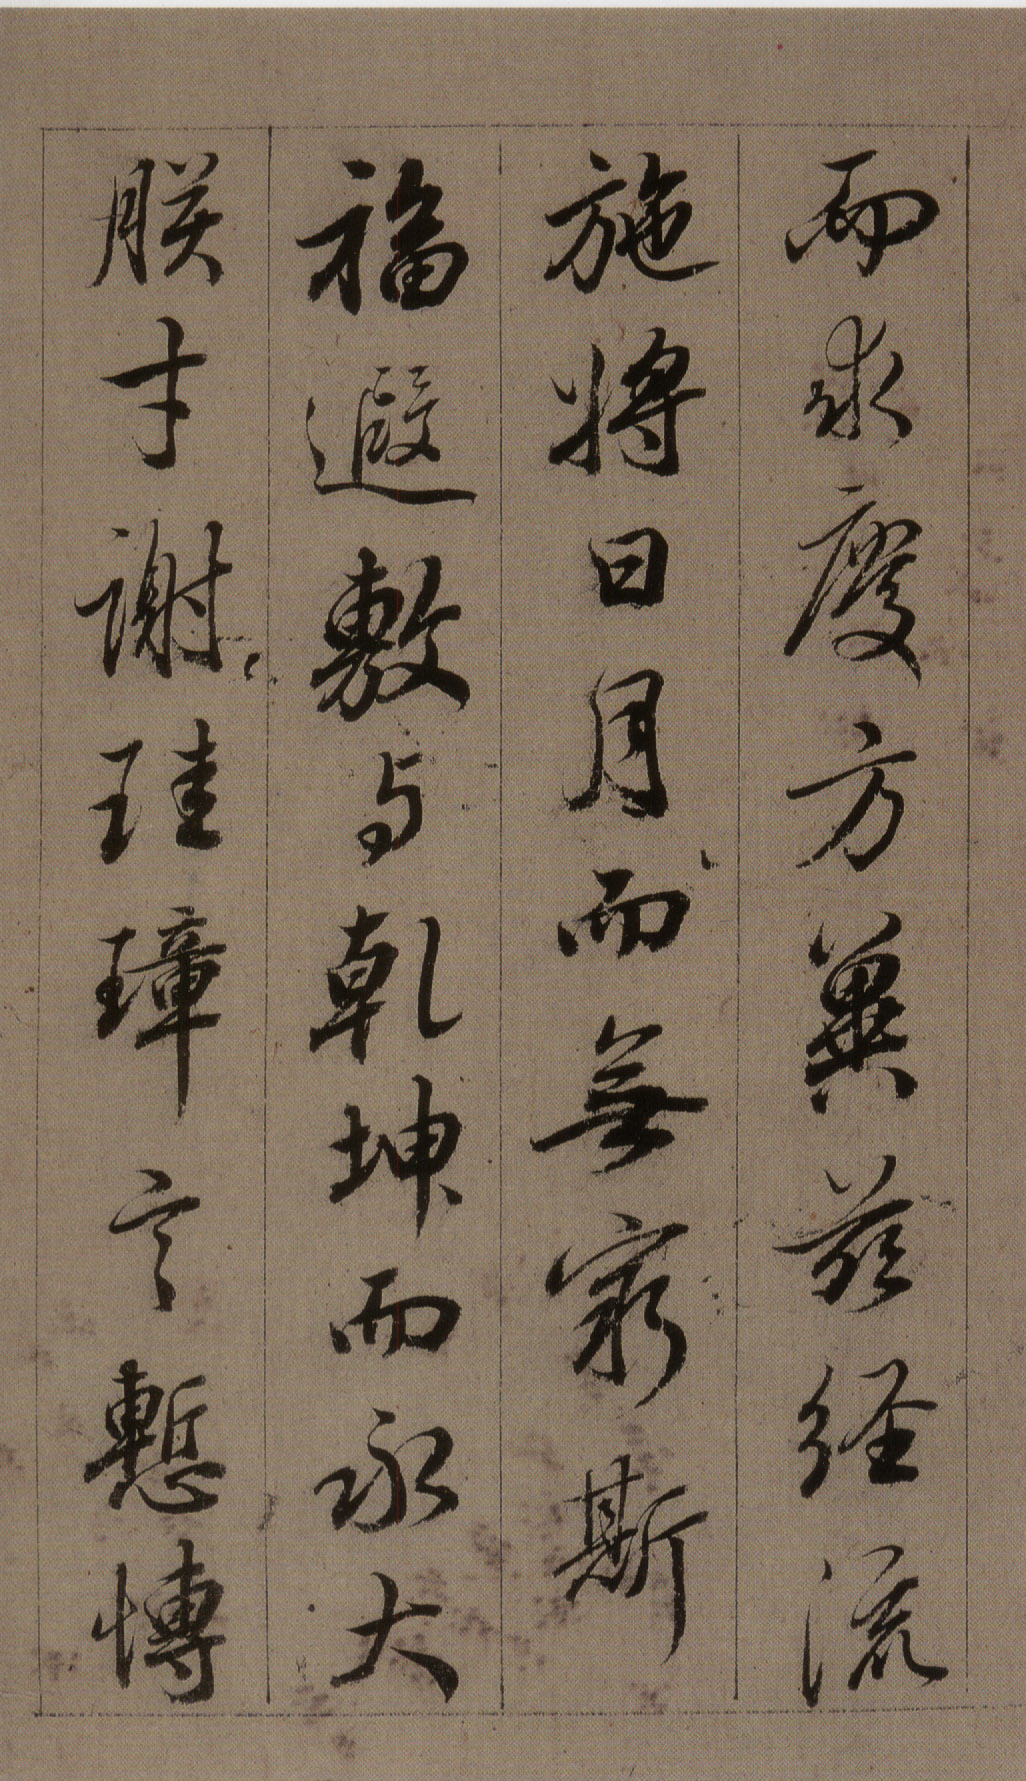 而求慶方兾茲经流
施將日月而無窮斯
福遐敷与乹坤而永大
朕才謝珪璋言慙博